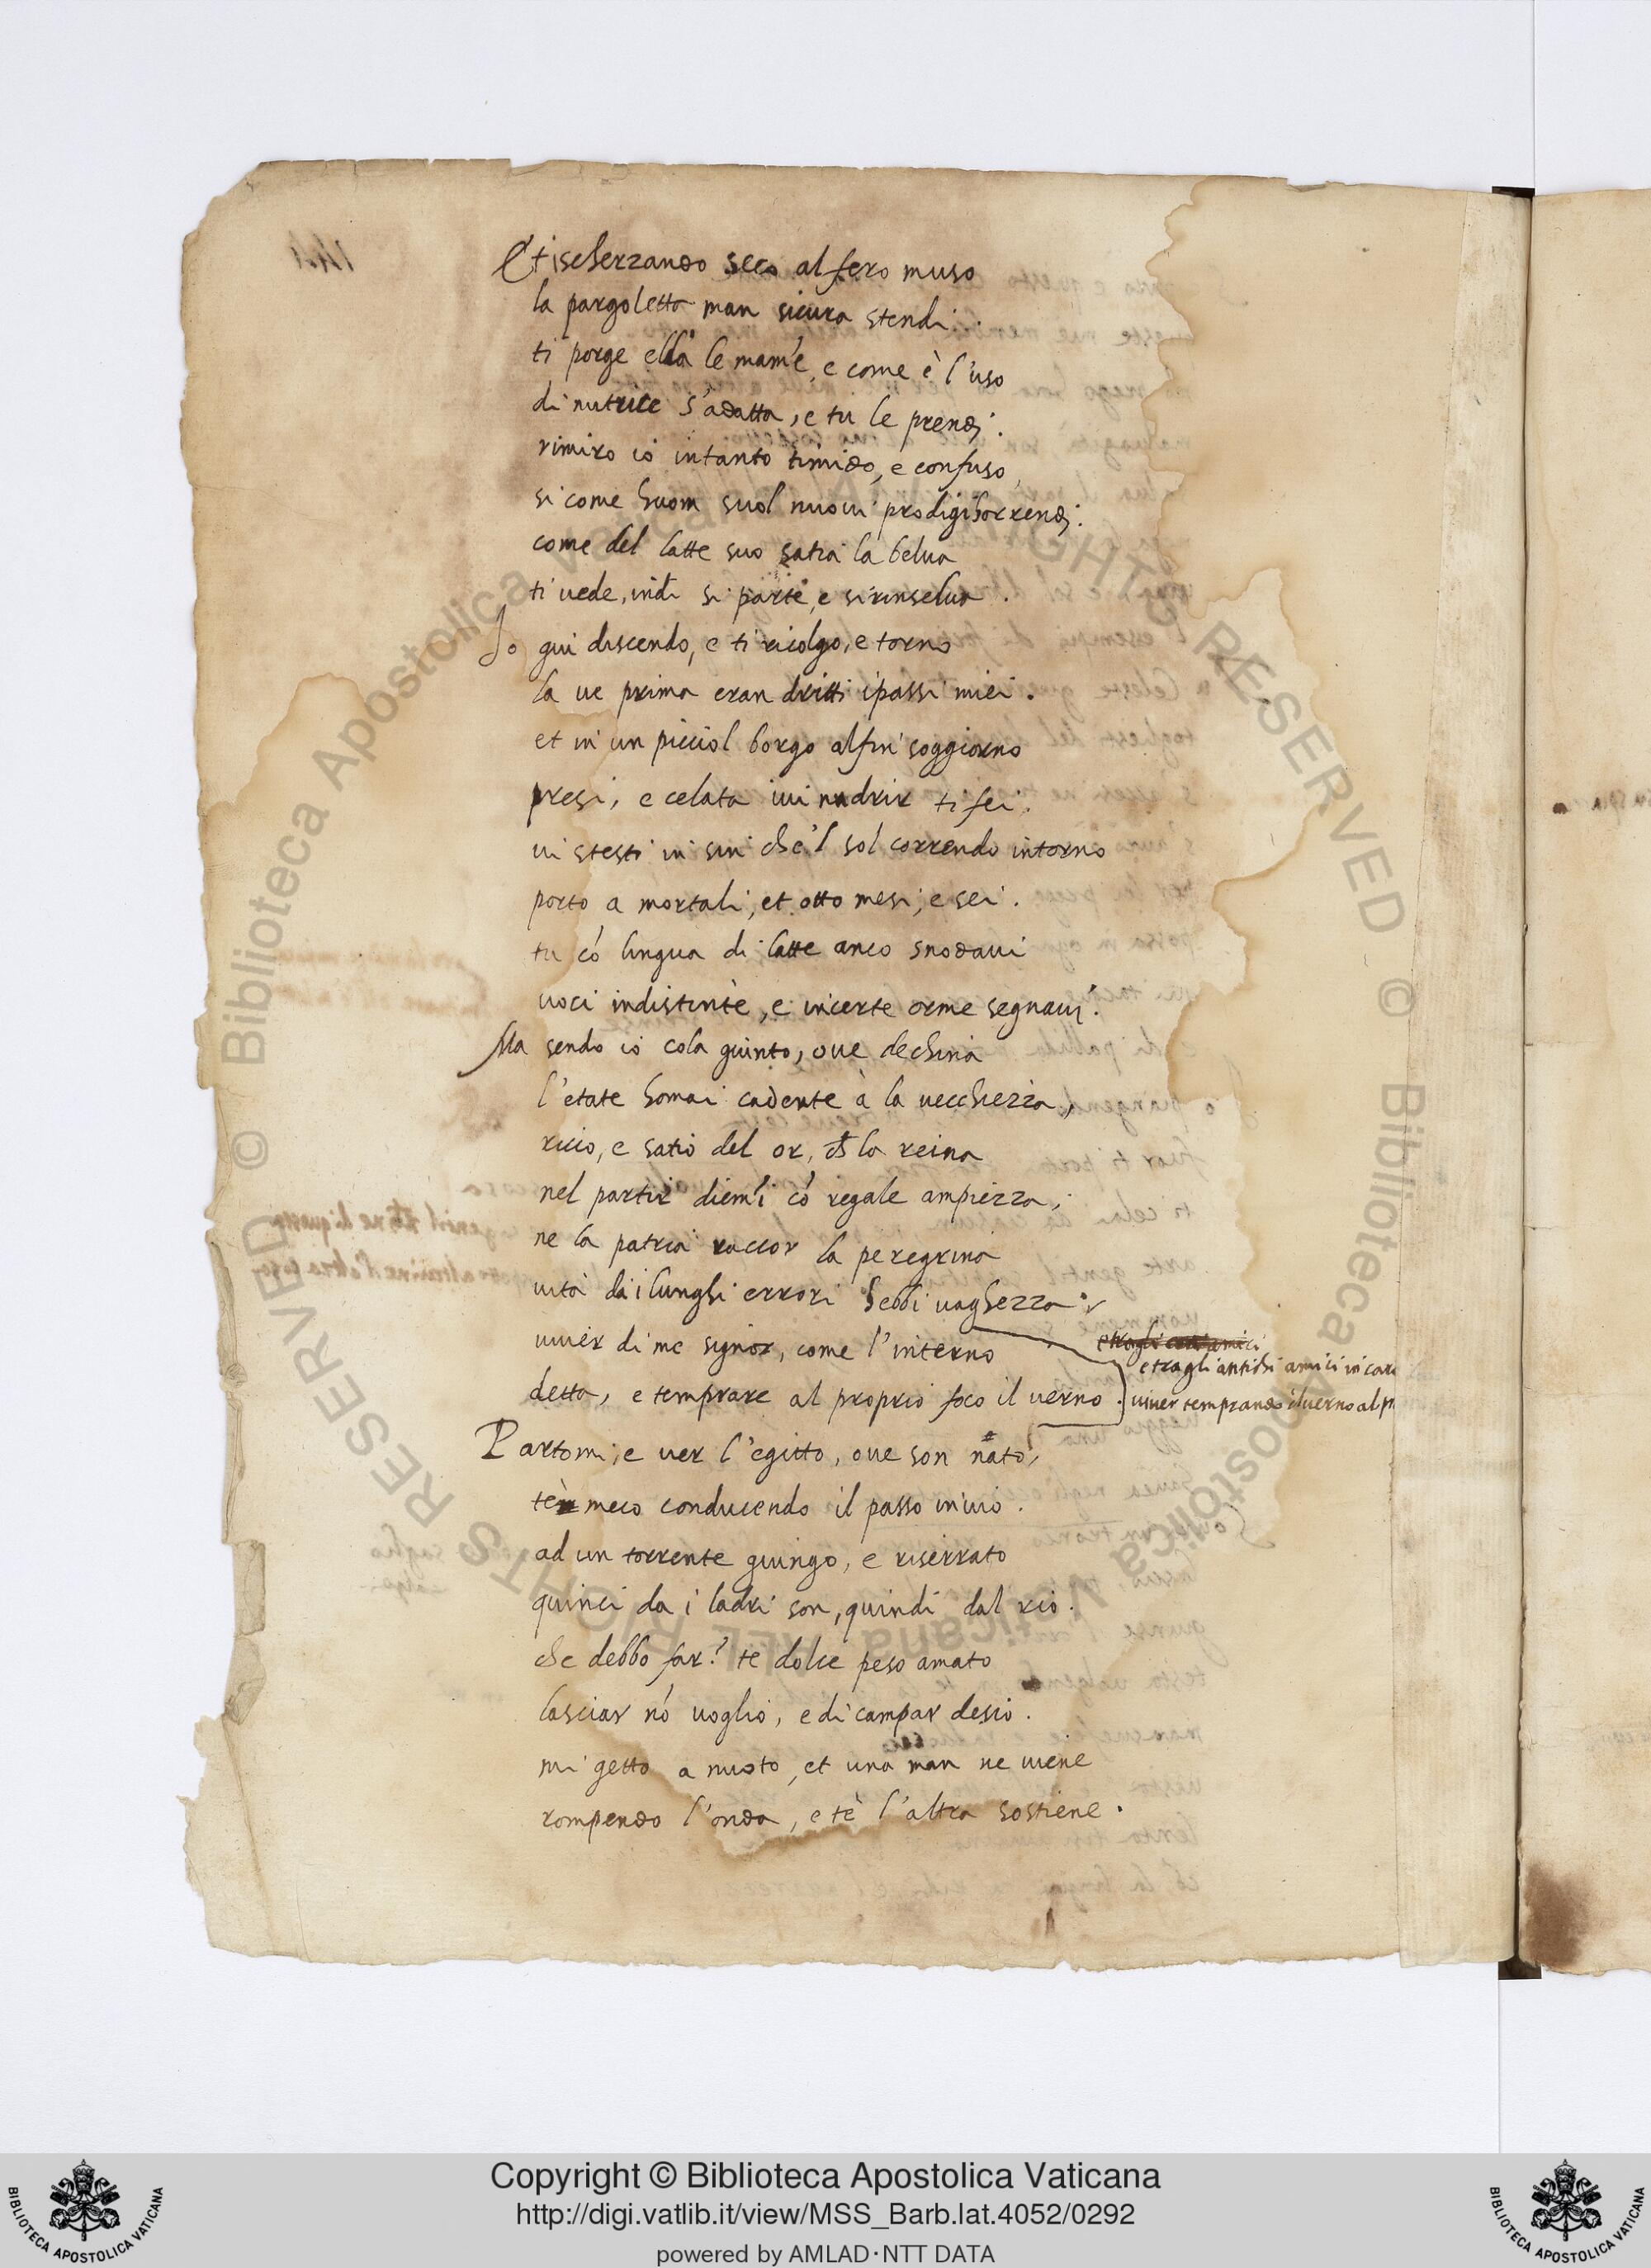 Et ischerzando seco al fero muso
la pargoletta man sicura stendi.
ti porge ella le mam̃e, e come è l'uso
di nutrice s'adatta, e tu le prendi.
rimiro io intanto timido, e confuso,
si come huom suol nuoui prodigi horrendi.
come del latte suo satia la belua
ti uede, indi si parte, e si rinselua.
Io giu discendo, e ti ricolgo, e torno
la ue prima eran dritti i passi miei.
et in un picciol borgo alfin soggiorno
presi, e celata iui nudrir ti fei.
ui stesti in sin che'l sol correndo intorno
porto a mortali, et otto mesi, e sei.
tu cõ lingua di latte anco snodaui
uoci indistinte, e incerte orme segnaui.
Ma sendo io cola giunto, oue dechina
l'etate homai cadente à la uecchiezza,
ricco, e satio del or, ch̃ la reina
nel partir diem̃i cõ regale ampiezza,
ne la patria raccor la peregrina
uita da i lunghi errori hebbi uaghezza
uiuer di me signor, come l'interno
detta, e temprare al proprio foco il uerno.
e tra gli
e tra gli antichi amici in car
uiuer temprando il uerno al p
Partomi, e uer l'egitto, oue son nato,
tè meco conducendo il passo inuio.
ad un torrente giungo, e riserrato
quinci da i ladri son, quindi dal rio.
che debbo far? te dolce peso amato
lasciar nõ uoglio, e di campar desio.
mi getto a nuoto, et una man ne uiene
rompendo l'onda, e tè l'altra sostiene.
© Biblioteca Apostolica Vaticana ALL RIGHTS RESERVED
BIBLIOTECA APOSTOLICA VATICANA
Copyright © Biblioteca Apostolica Vaticana
http://digi.vatlib.it/view/MSS_Barb.lat.4052/0292
powered by AMLAD·NTT DATA
BIBLIOTECA APOSTOLICA VATICANA